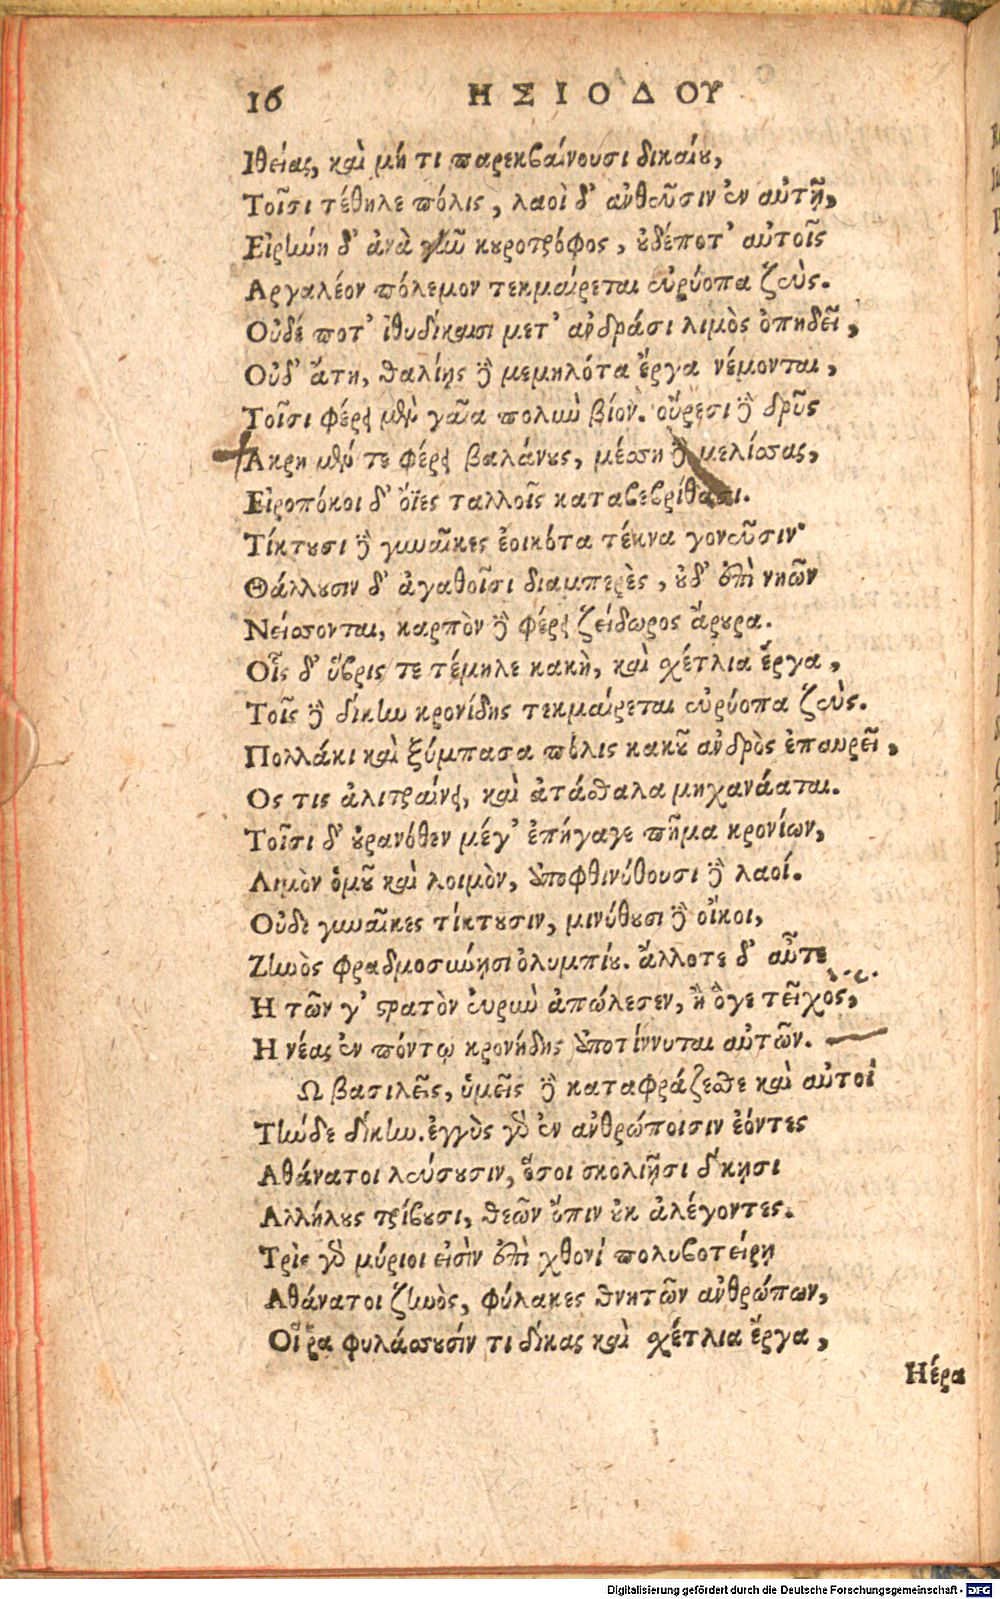 16 ΗΣΙΟΔΟΥ
Ιθείας, καὶ μή τι παρεκβαίνουσι δικαίου,
Τοῖσι τέθηλε πόλις, λαοὶ δ' ἀνθεῦσιν ἐν αὐτῇ,
Εἰρήνη δ' ἀνὰ γῆν κουροτρόφος, οὐδέποτ' αὐτοῖς
Αργαλέον πόλεμον τεκμαίρεται εὐρύοπα ζεὺς.
Οὐδέ ποτ' ἰθυδίκαισι μετ' ἀνδράσι λιμὸς ὀπηδεῖ,
Οὐδ' ἄτη, θαλίῃς δὲ μεμηλότα ἔργα νέμονται,
Τοῖσι φέρει μὲν γαῖα πολὺν βίον. οὔρεσι δὲ δρῦς
Ακρη μέν τε φέρει βαλάνους, μέσση δὲ μελίσσας,
Εἰροπόκοι δ' ὄϊες ταλλοῖς καταβεβρίθασι.
Τίκτουσι δὲ γυναῖκες ἐοικότα τέκνα γονεῦσιν·
Θάλλουσιν δ' ἀγαθοῖσι διαμπερὲς, οὐδ' ἐπὶ νηῶν
Νείσσονται, καρπὸν δὲ φέρει ζείδωρος ἄρουρα.
Οἷς δ' ὕβρις τε τέμηλε κακὴ, καὶ σχέτλια ἔργα,
Τοῖς δὲ δίκην κρονίδης τεκμαίρεται εὐρύοπα ζεὺς.
Πολλάκι καὶ ξύμπασα πόλις κακοῦ ἀνδρὸς ἐπαυρεῖ,
Ος τις ἀλιτραίνει, καὶ ἀτάσθαλα μηχανάαται.
Τοῖσι δ' οὐρανόθεν μέγ' ἐπήγαγε πῆμα κρονίων,
Λιμὸν ὁμοῦ καὶ λοιμὸν, ἀποφθινύθουσι δὲ λαοί.
Οὐδε γυναῖκες τίκτουσιν, μινύθουσι δὲ οἶκοι,
Ζηνὸς φραδμοσύνῃσι ὀλυμπίου. ἄλλοτε δ' αὖτε
Η τῶν γ' στρατὸν εὐρὺν ἀπώλεσεν, ἢ ὅγε τεῖχος,
Η νέας ἐν πόντῳ κρονίδης ἀποτίννυται αὐτῶν.
Ω βασιλεῖς, ὑμεῖς δὲ καταφράζεσθε καὶ αὐτοὶ
Τήνδε δίκην. ἐγγὺς γὰρ ἐν ἀνθρώποισιν ἐόντες
Αθάνατοι λεύσουσιν, ὅσοι σκολιῇσι δίκῃσι
Αλλήλους τρίβουσι, θεῶν ὄπιν οὐκ ἀλέγοντες.
Τρὶς γὰρ μύριοι εἰσὶν ἐπὶ χθονὶ πολυβοτείρῃ
Αθάνατοι ζηνὸς, φύλακες θνητῶν ἀνθρώπων,
Οἵ ῥα φυλάσσουσίν τι δίκας καὶ σχέτλια ἔργα,
Ηέρα
Digitalisierung gefördert durch die Deutsche Forschungsgemeinschaft - DFG